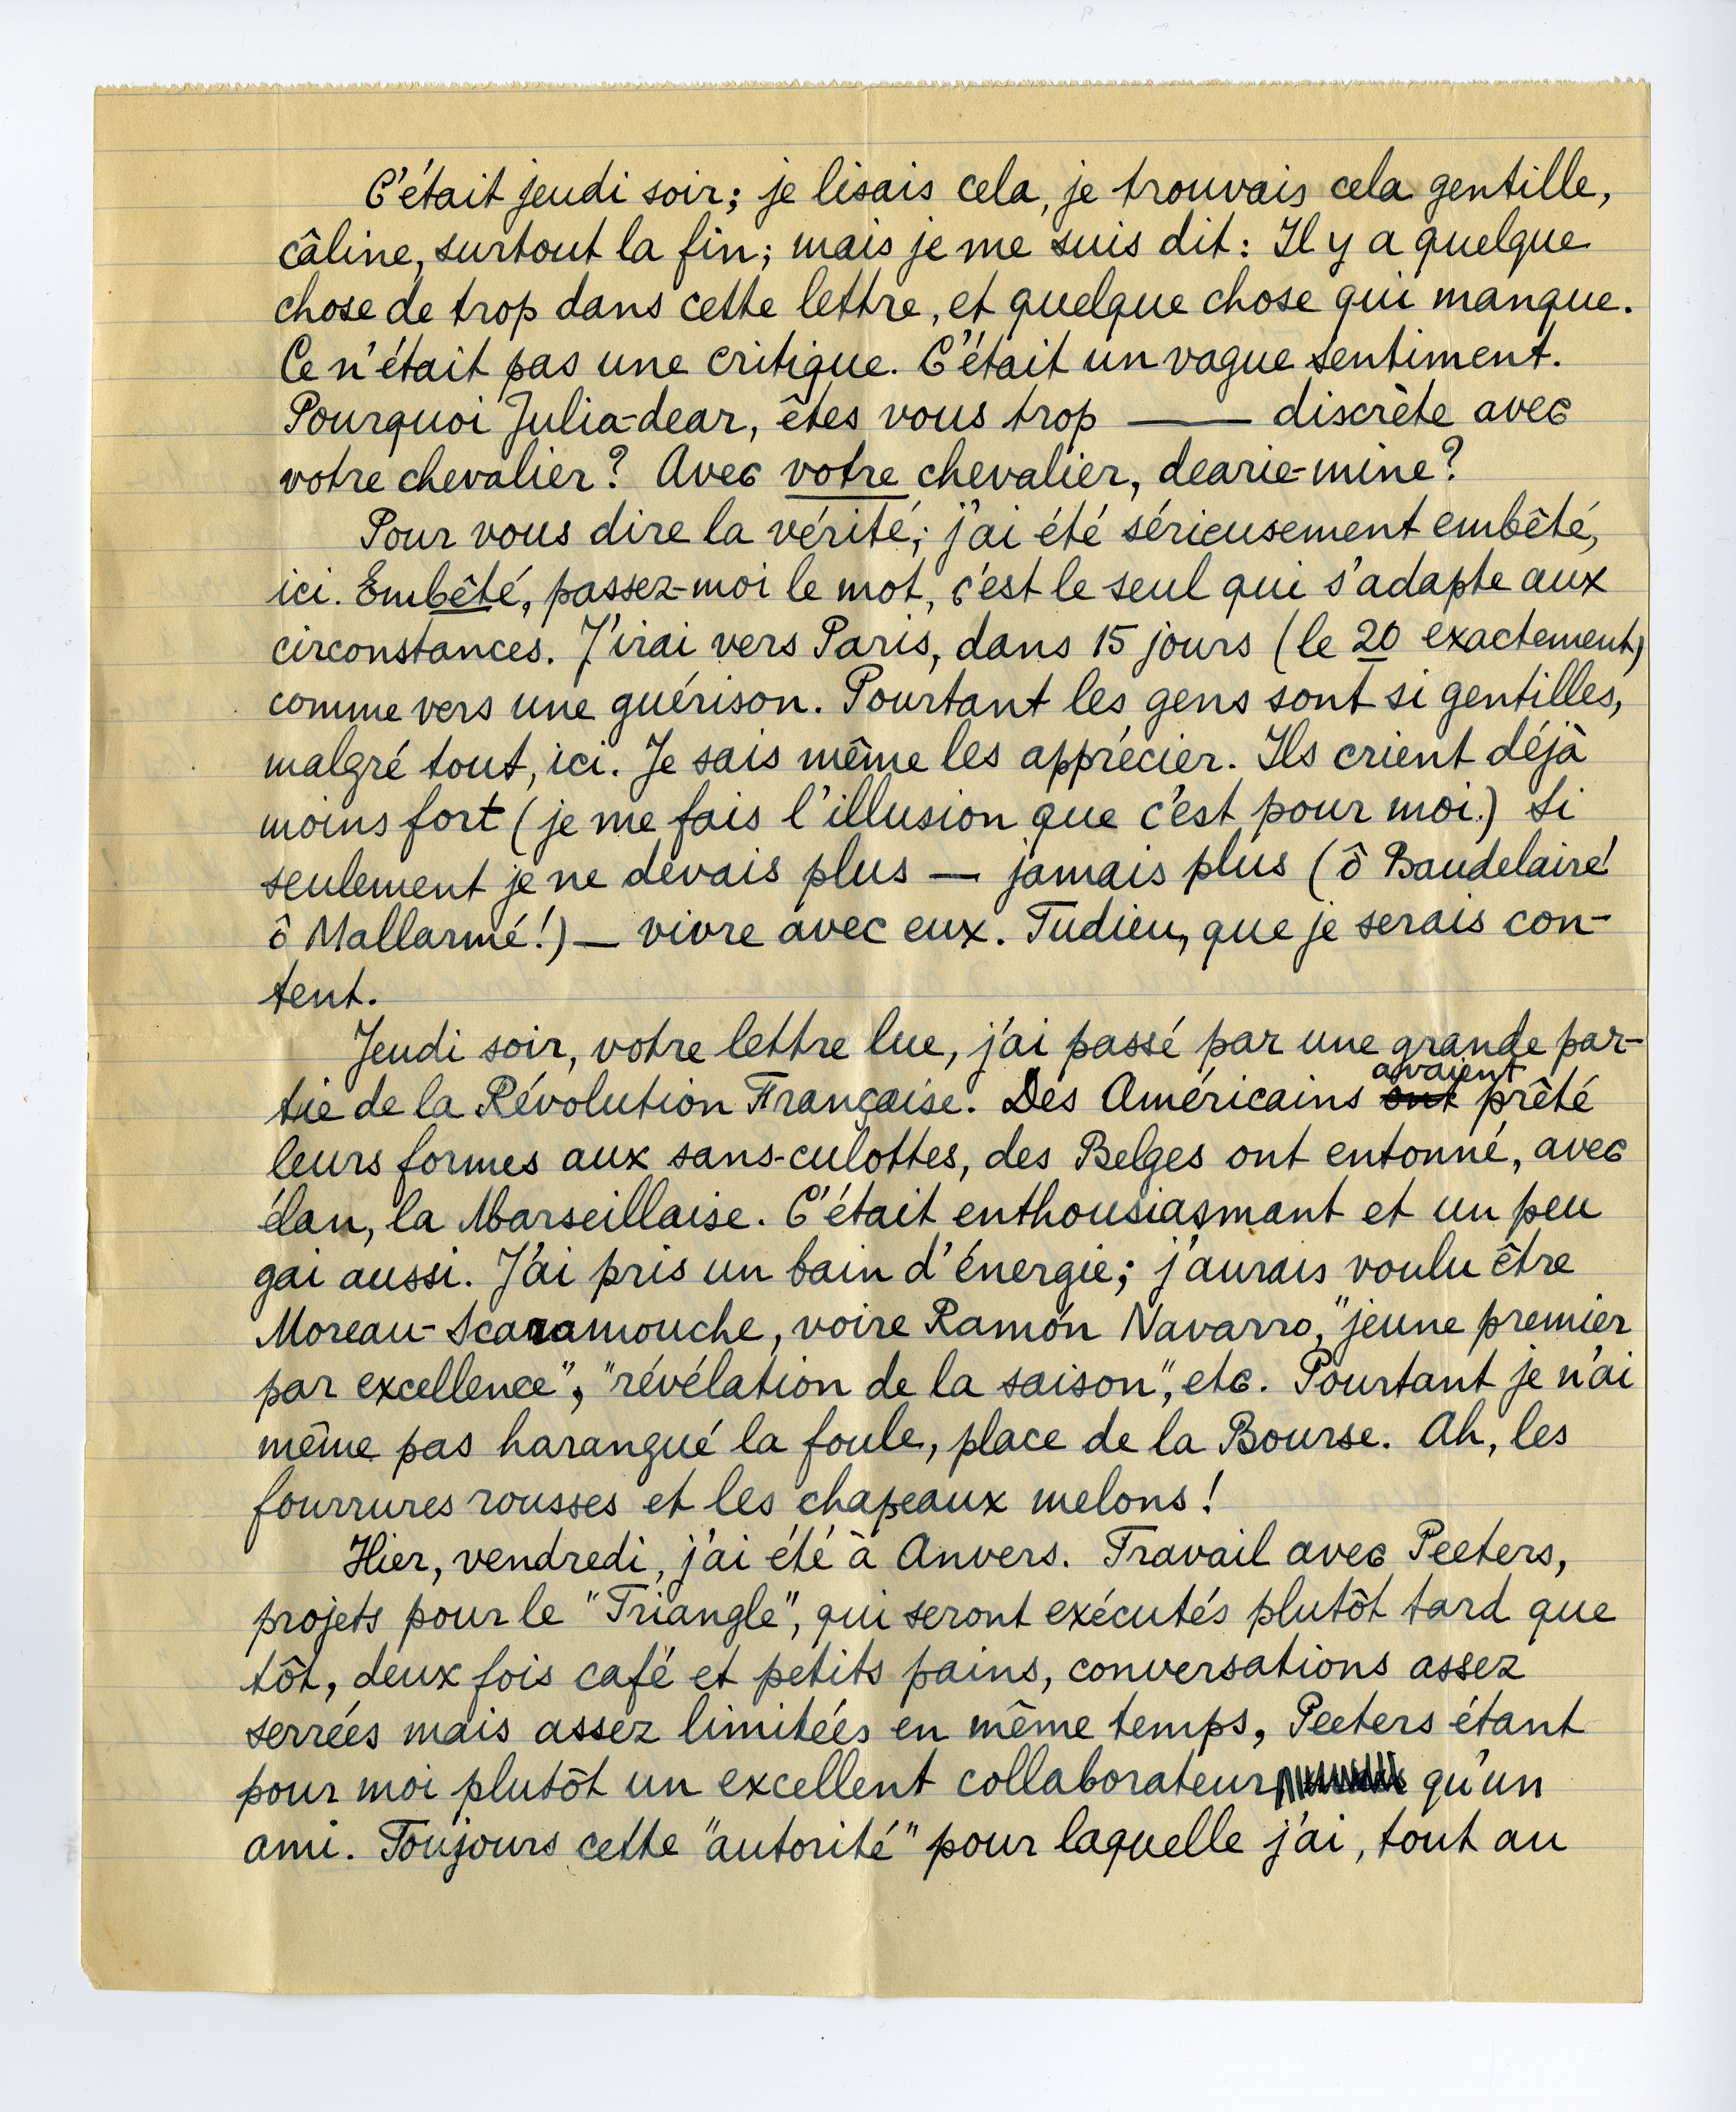 C'était jeudi soir; je lisais cela, je trouvais cela gentille,
câline, surtout la fin; mais je me suis dit: Il y a quelque
chose de trop dans cette lettre, et quelque chose qui manque.
Ce n'était pas une critique. C'était un vague sentiment.
Pourquoi Julia-dear, êtes vous trop —— discrète avec
votre chevalier? Avec votre chevalier, dearie-mine?
Pour vous dire la vérité; j'ai été sérieusement embêté,
ici. Embêté, passez-moi le mot, c'est le seul qui s'adapte aux
circonstances. J'irai vers Paris, dans 15 jours (le 20 exactement)
comme vers une guérison. Pourtant les gens sont si gentilles,
malgré tout, ici. Je sais même les apprécier. Ils crient déjà
moins fort (je me fais l'illusion que c'est pour moi.) Si
seulement je ne devais plus — jamais plus (ô Baudelaire!
ô Mallarmé!) — vivre avec eux. Tudieu, que je serais con-
tent.
Jeudi soir, votre lettre lue, j'ai passé par une grande par-
tie de la Révolution Française. Des Américains ont avaient prêté
leurs formes aux sans-culottes, des Belges ont entonné, avec
élan, la Marseillaise. C'était enthousiasmant et un peu
gai aussi. J'ai pris un bain d'énergie; j'aurais voulu être
Moreau-Scaramouche, voire Ramón Navarro, "jeune premier
par excellence", "révélation de la saison", etc. Pourtant je n'ai
même pas harangué la foule, place de la Bourse. Ah, les
fourrures rousses et les chapeaux melons!
Hier, vendredi, j'ai été à Anvers. Travail avec Peeters,
projets pour le "Triangle", qui seront exécutés plutôt tard que
tôt, deux fois café et petits pains, conversations assez
serrées mais assez limitées en même temps, Peeters étant
pour moi plutôt un excellent collaborateur qu'un
ami. Toujours cette "autorité" pour laquelle j'ai, tout au